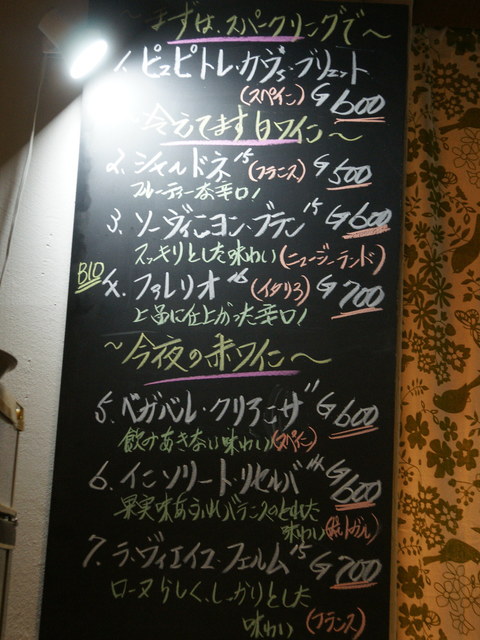 〜まずは、スパークリングで〜
1. ピュピトレ・カヴァ・ブリュット
(スペイン) G 600
冷えてます白ワイン〜
2. シャルドネ '15 (フランス) G 500
フルーティーな辛口!
3. ソーヴィニヨン・ブラン '15 G 600
スッキリとした味わい (ニュージーランド)
BIO 4. ファレリオ '16 (イタリア) G 700
上品に仕上がった辛口!
〜今夜の赤ワイン〜
5. ベガバル・クリアンサ '11 G 600
飲みあきない味わい (スペイン)
6. インソリート・リセルバ '14 G 600
果実味あふれバランスのとれた
味わい (ポルトガル)
7. ラ・ヴィエイユ・フェルム '15 G 700
ローヌらしく、しっかりとした
味わい (フランス)